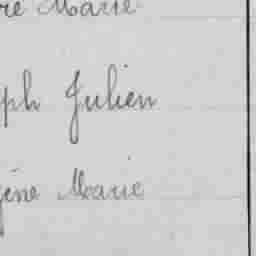 re Marie
ph Julien
gène Marie